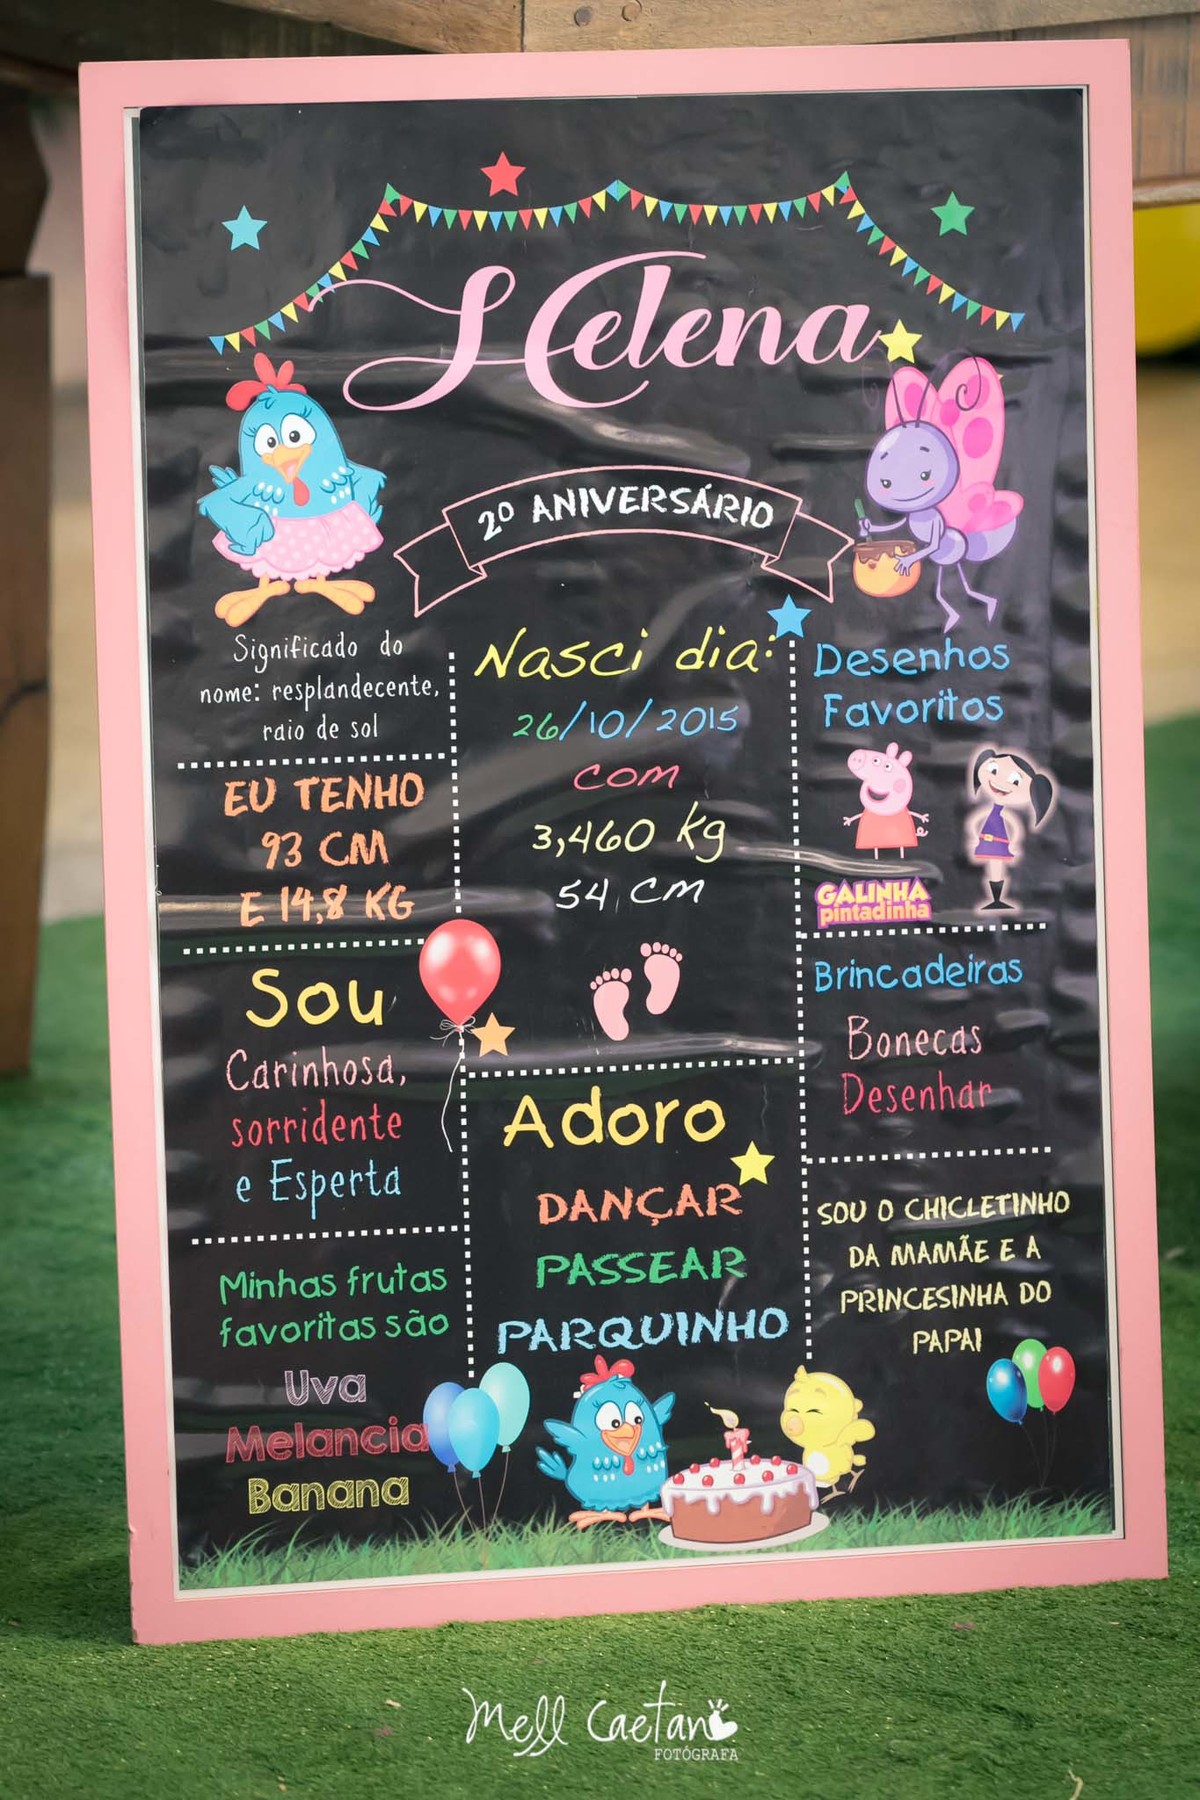 Helena
2º ANIVERSÁRIO
Significado do
nome: resplandecente,
raio de sol
EU TENHO
93 CM
E 14,8 KG
Sou
Carinhosa,
sorridente
e Esperta
Minhas frutas
favoritas são
Uva
Melancia
Banana
Nasci dia:
26/10/2015
com
3,460 kg
54 cm
Adoro
DANÇAR
PASSEAR
PARQUINHO
Desenhos
Favoritos
GALINHA
pintadinha
Brincadeiras
Bonecas
Desenhar
SOU O CHICLETINHO
DA MAMÃE E A
PRINCESINHA DO
PAPAI
Mell Caetano
FOTÓGRAFA